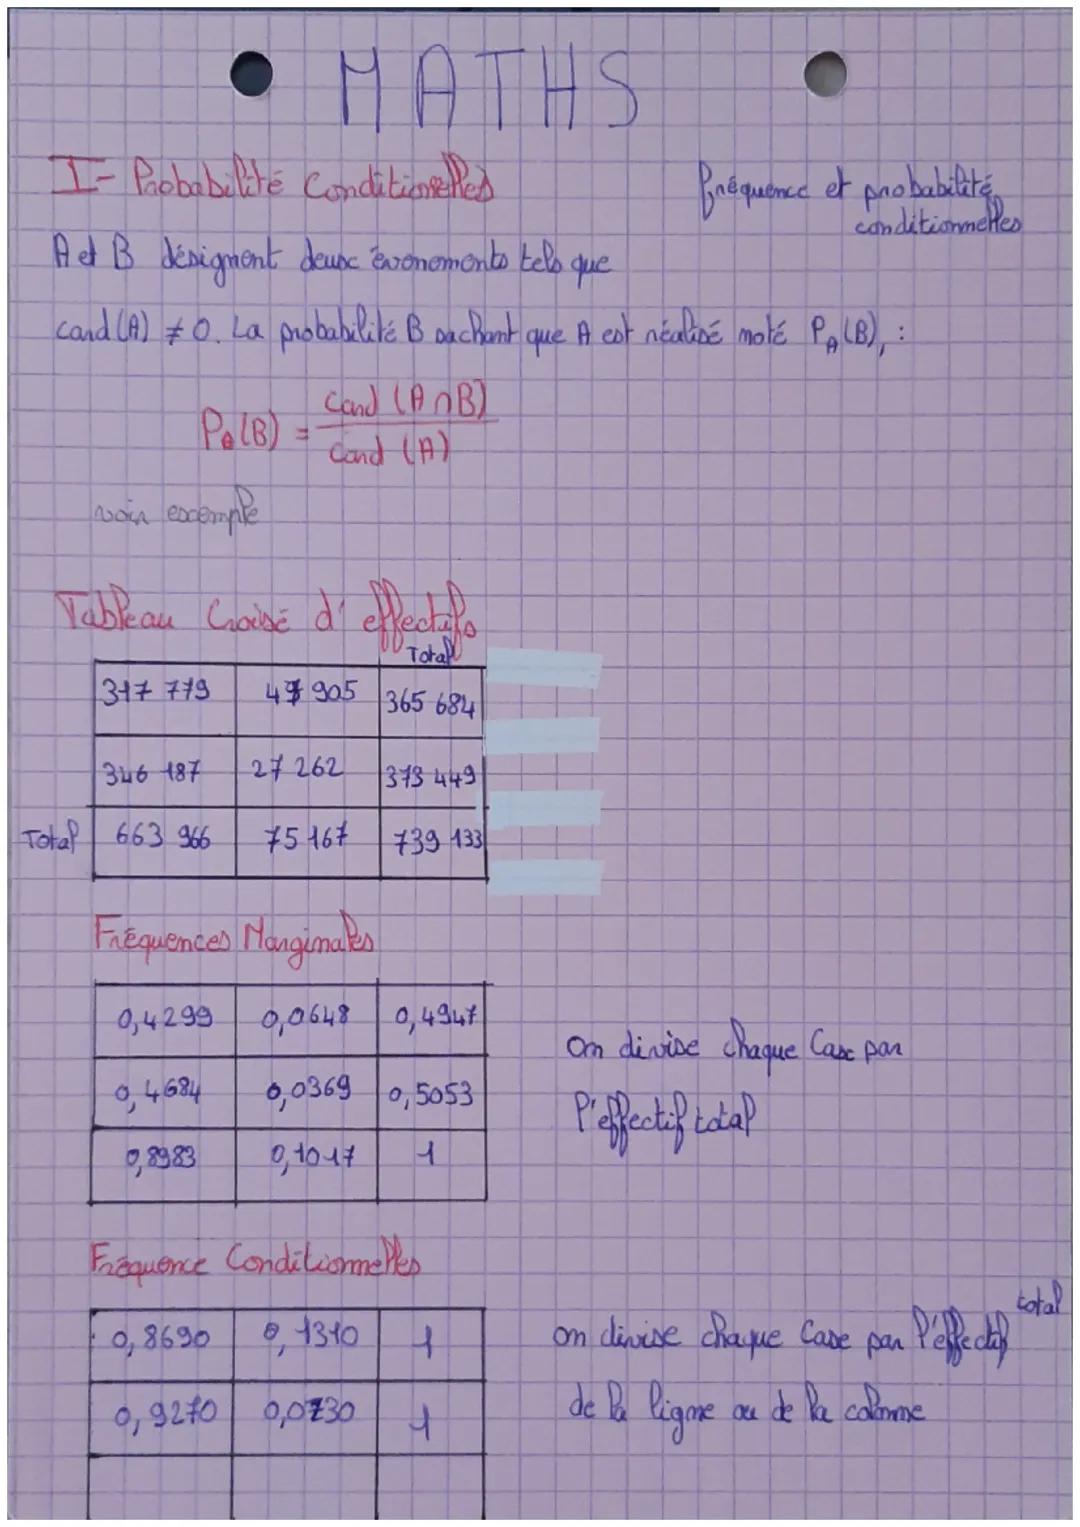 MATHS
I- Probabilité Conditionnelles
fréquence et probabilité
conditionnelles
A et B désignent deux évenements tels que
card (A) ≠ 0. La probabilité B sachant que A est réalisé noté P_A(B), :
P_A(B) = card (A∩B) / card (A)
voir exemple
Tableau Croisé d'effectifs
Total
317 779 47 905 365 684
346 187 27 262 373 449
Total 663 966 75 167 739 133
Fréquences Marginales
0,4299 0,0648 0,4947
0,4684 0,0369 0,5053
0,8983 0,1017 1
on divise chaque Case par
l'effectif total
Fréquence Conditionnelles
0,8690 0,1310 1
0,9270 0,0730 1
on divise chaque Case par l'effectif total
de la ligne ou de la colonne